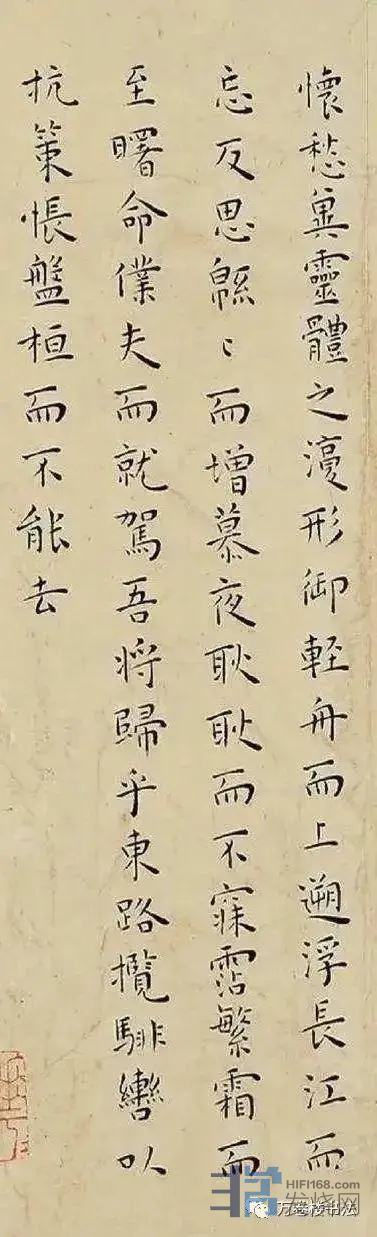 懷愁冀靈體之澓形御輕舟而上遡浮長江而
忘反思緜〻而增慕夜耿耿而不寐霑繁霜而
至曙命僕夫而就駕吾將歸乎東路攬騑轡以
抗策悵盤桓而不能去
HIFI168.com
发烧网
书法